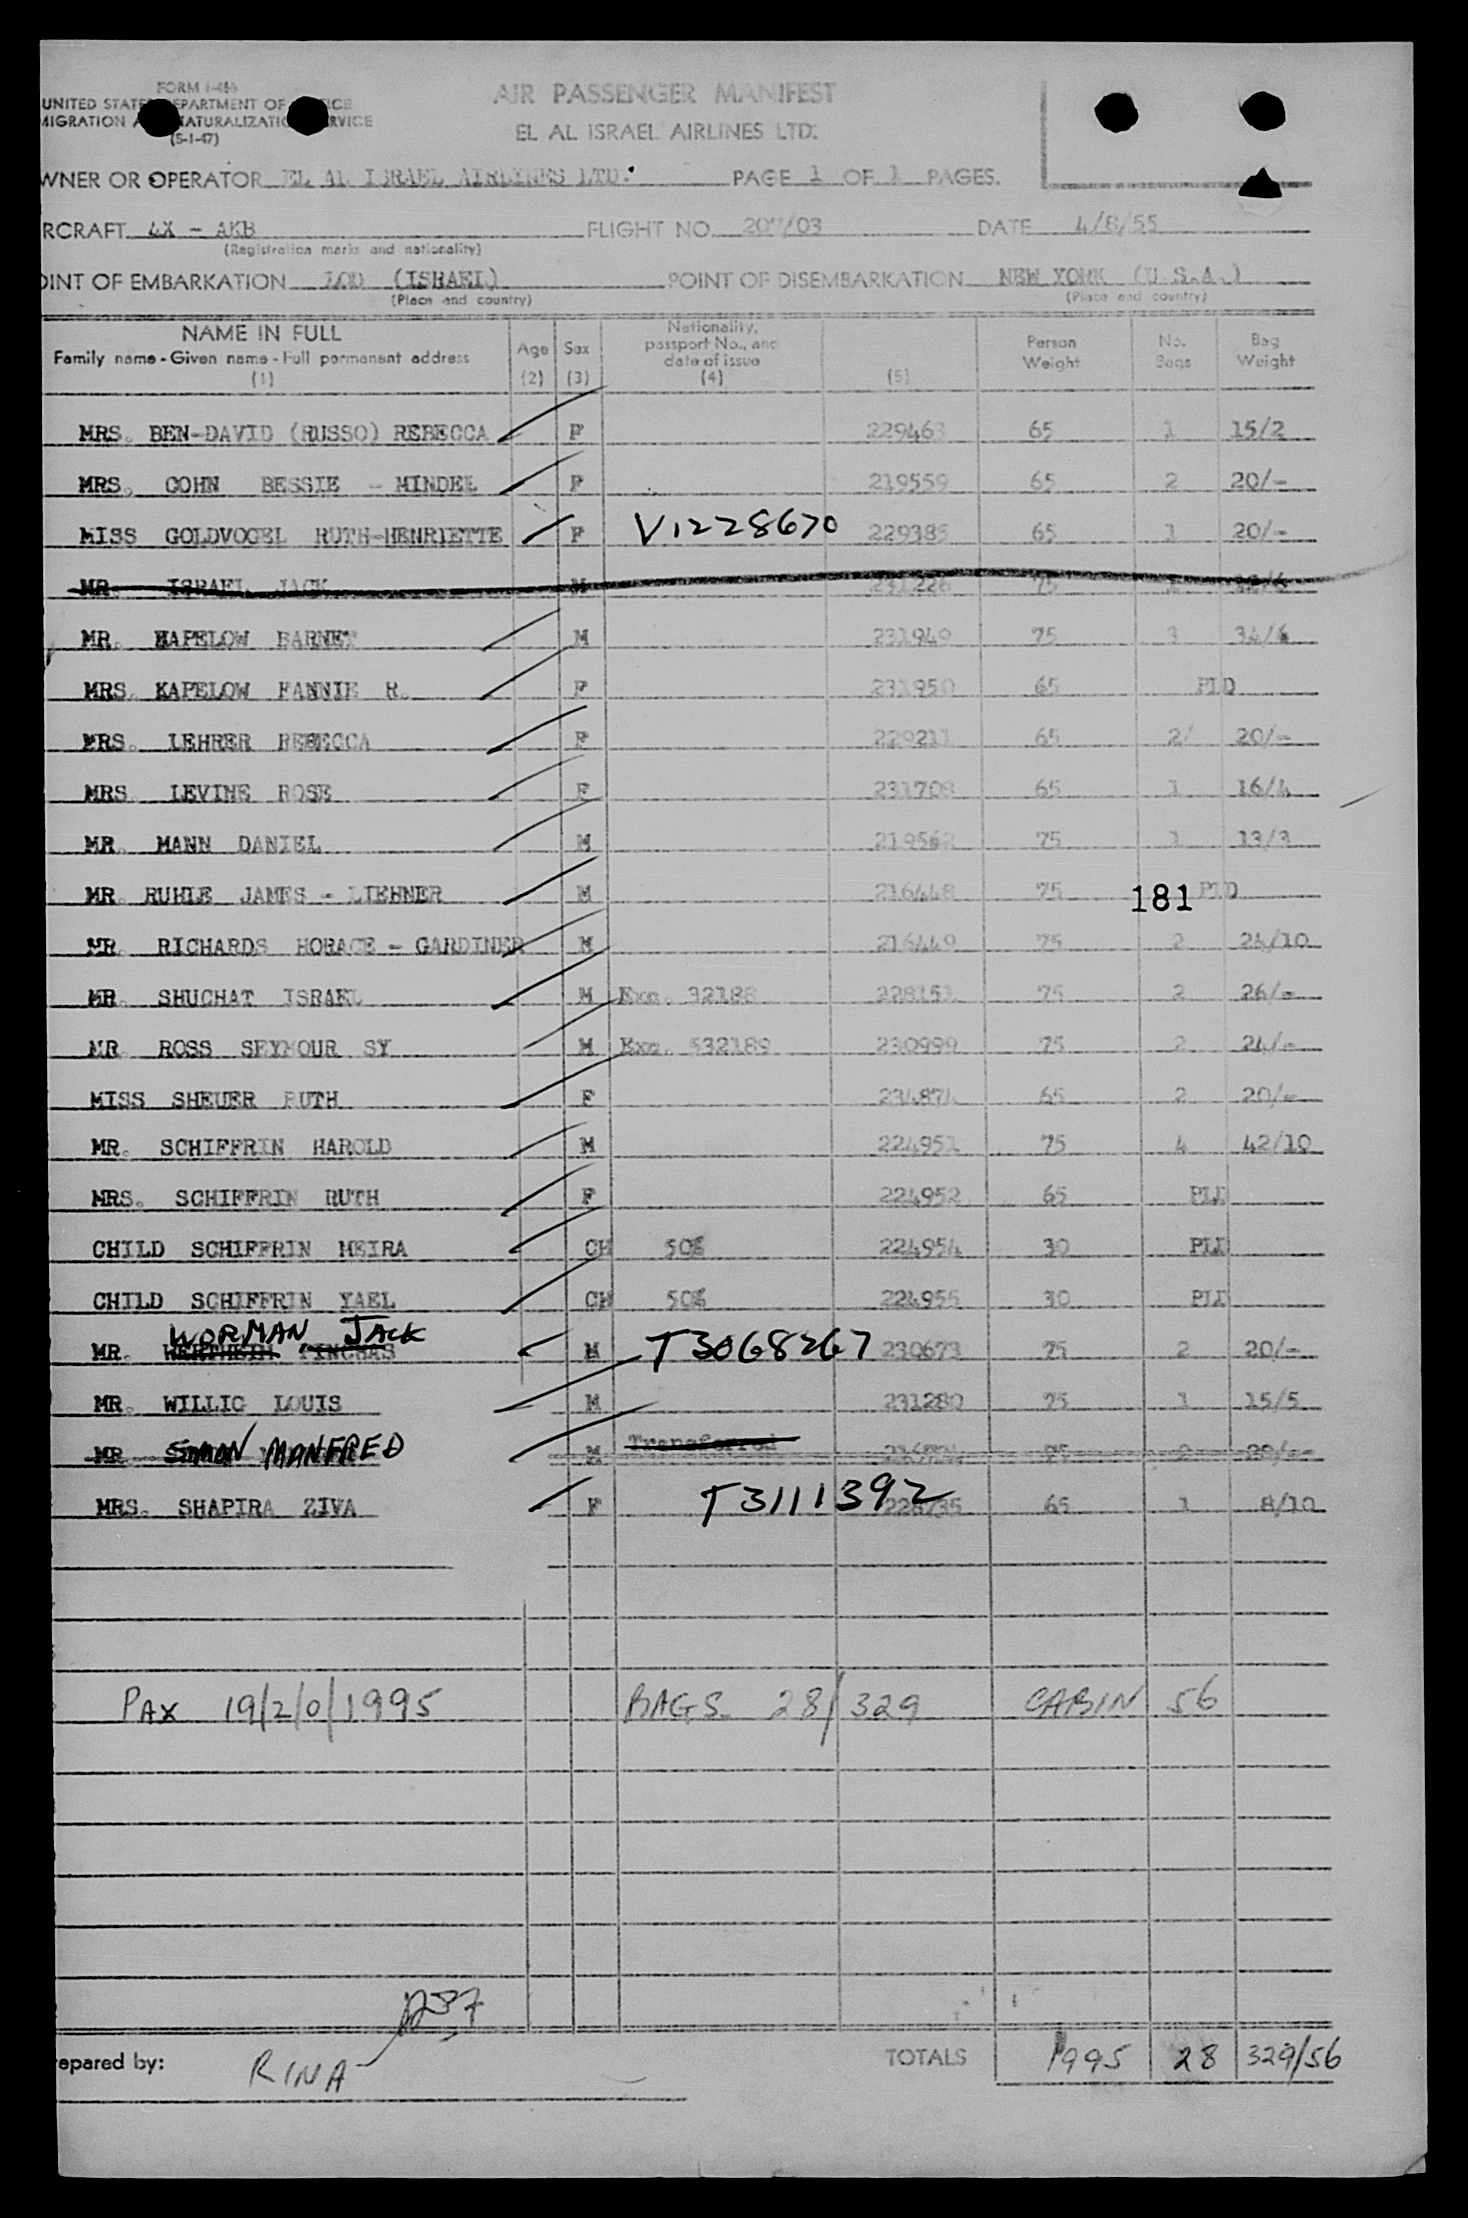 FORM I-466
UNITED STATES DEPARTMENT OF
MIGRATION NATURALIZATION SERVICE
(5-1-47)
AIR PASSENGER MANIFEST
EL AL ISRAEL AIRLINES LTD.
WNER OR OPERATOR EL AL ISRAEL AIRLINES LTD. PAGE 1 OF 1 PAGES.
RCRAFT 4X - AKB FLIGHT NO. 207/03 DATE 4/8/55
(Registration marks and nationality)
OINT OF EMBARKATION LOD (ISRAEL) POINT OF DISEMBARKATION NEW YORK (U.S.A.)
(Place and country) (Place and country)
NAME IN FULL Age Sex Nationality, passport No., and date of issue Person Weight No. Bags Bag Weight
Family name - Given name - Full permanent address
(1) (2) (3) (4) (5)
MRS. BEN-DAVID (RUSSO) REBECCA F 229463 65 1 15/2
MRS. COHN BESSIE - MINDEL F 219559 65 2 20/-
MISS GOLDVOGEL RUTH-HENRIETTE F V1228670 229385 65 1 20/-
MR. ISRAEL JACK M 231226 75
MR. KAPELOW BARNET M 231949 75 3 34/6
MRS. KAPELOW FANNIE R. F 231950 65 PLD
MRS. LEHRER REBECCA F 229211 65 2 20/-
MRS. LEVINE ROSE F 231708 65 1 16/4
MR. MANN DANIEL M 219562 75 1 13/3
MR. RUHLE JAMES - LIEHNER M 216448 75 PLD
181
MR. RICHARDS HORACE - GARDINER M 216449 75 2 24/10
MR. SHUCHAT ISRAEL M Exc. 32188 228153 75 2 26/-
MR. ROSS SEYMOUR SY M Exc. 532189 230999 75 2 24/-
MISS SHEUER RUTH F 234874 65 2 20/-
MR. SCHIFFRIN HAROLD M 224951 75 4 42/10
MRS. SCHIFFRIN RUTH F 224952 65 PLD
CHILD SCHIFFRIN MEIRA CH 50% 224954 30 PLD
CHILD SCHIFFRIN YAEL CH 50% 224955 30 PLD
WORMAN JACK
MR. WERTHEIM PINCHAS M T3068267 230673 75 2 20/-
MR. WILLIG LOUIS M 231280 75 1 15/5
MR. SIMON MANFRED M Transferred 75 2 20/-
MRS. SHAPIRA ZIVA F T3111392 228735 65 1 8/10
PAX 19/2/0/1995 BAGS. 28/329 CABIN 56
epared by: RINA TOTALS 1995 28 329/56